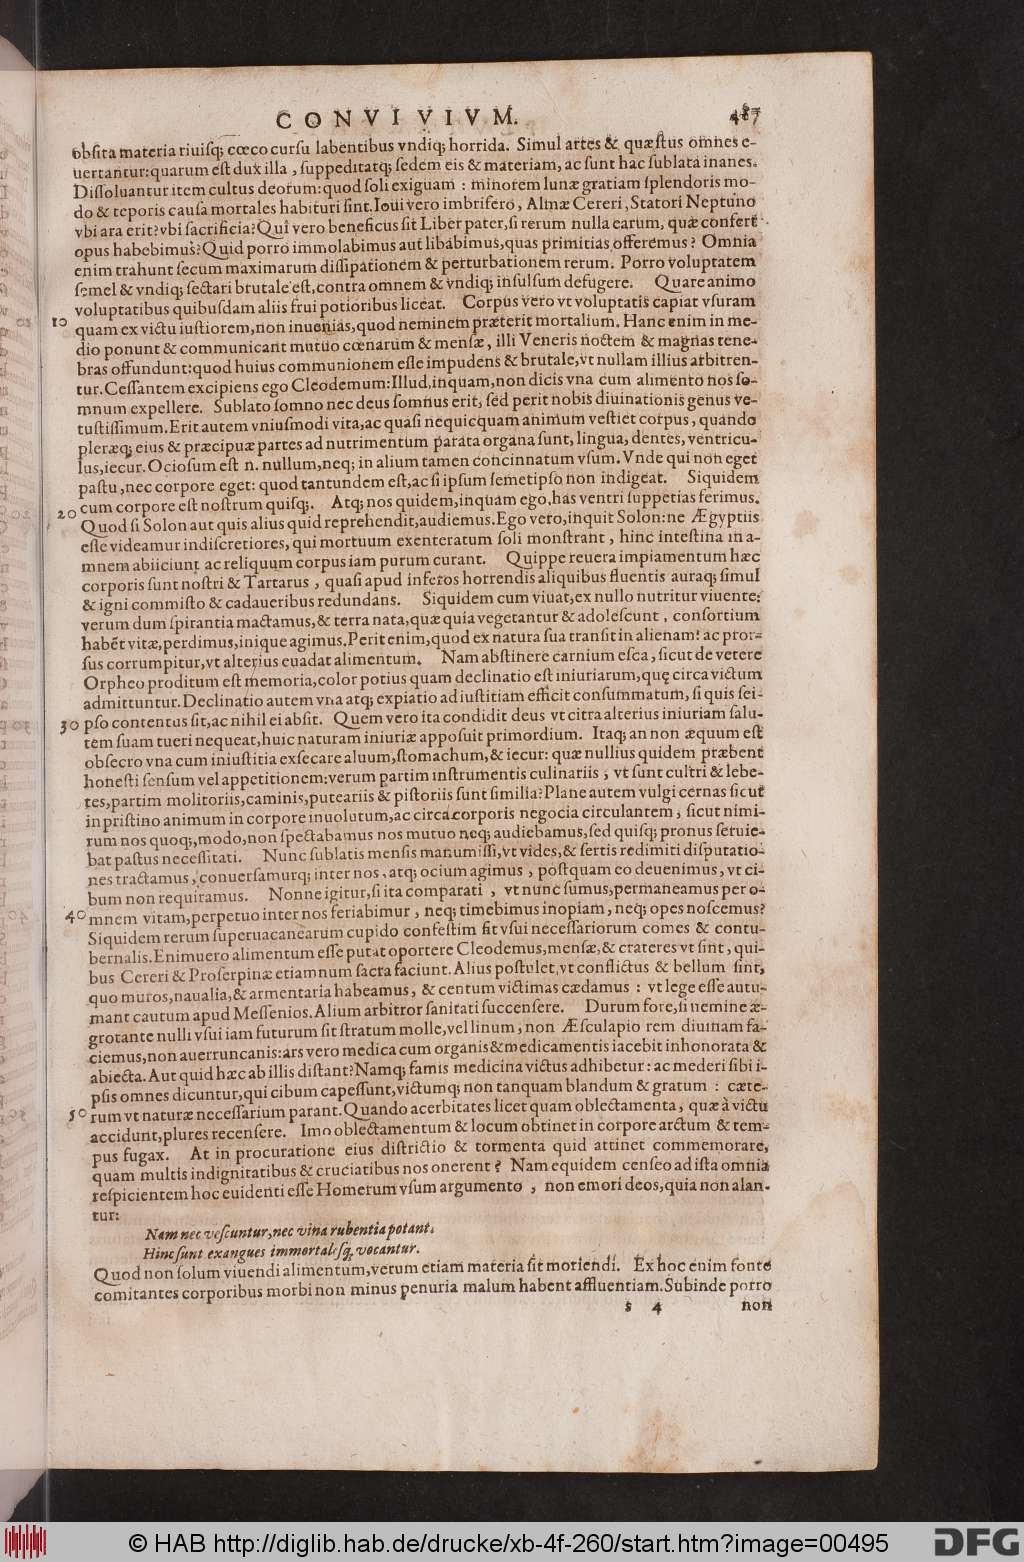 CONVIVIVM. 487
obſita materia riuiſq; cœco curſu labentibus vndiq; horrida. Simul artes & quæſtus omnes e-
uertantur: quarum eſt dux illa, ſuppeditatq; ſedem eis & materiam, ac ſunt hac ſublata inanes.
Diſſoluantur item cultus deorum: quod ſoli exiguam: minorem lunæ gratiam ſplendoris mo-
do & teporis cauſa mortales habituri ſint. Ioui vero imbrifero, Almæ Cereri, Statori Neptuno
vbi ara erit? vbi ſacrificia? Qui vero beneficus ſit Liber pater, ſi rerum nulla earum, quæ confert
opus habebimus? Quid porro immolabimus aut libabimus, quas primitias offeremus? Omnia
enim trahunt ſecum maximarum diſſipationem & perturbationem rerum. Porro voluptatem
ſemel & vndiq; ſectari brutale eſt, contra omnem & vndiq; inſulſum defugere. Quare animo
voluptatibus quibuſdam aliis frui potioribus liceat. Corpus vero vt voluptatis capiat vſuram
10 quam ex victu iuſtiorem, non inuenias, quod neminem præterit mortalium. Hanc enim in me-
dio ponunt & communicant mutuo cœnarum & menſæ, illi Veneris noctem & magnas tene-
bras offundunt: quod huius communionem eſſe impudens & brutale, vt nullam illius arbitren-
tur. Ceſſantem excipiens ego Cleodemum: Illud, inquam, non dicis vna cum alimento nos ſo-
mnum expellere. Sublato ſomno nec deus ſomnus erit, ſed perit nobis diuinationis genus ve-
tuſtiſſimum. Erit autem vniuſmodi vita, ac quaſi nequicquam animum veſtiet corpus, quando
pleræq; eius & præcipuæ partes ad nutrimentum parata organa ſunt, lingua, dentes, ventricu-
lus, iecur. Ocioſum eſt n. nullum, neq; in alium tamen concinnatum vſum. Vnde qui non eget
paſtu, nec corpore eget: quod tantundem eſt, ac ſi ipſum ſemetipſo non indigeat. Siquidem
cum corpore eſt noſtrum quiſq;. Atq; nos quidem, inquam ego, has ventri ſuppetias ferimus.
20 Quod ſi Solon aut quis alius quid reprehendit, audiemus. Ego vero, inquit Solon: ne Ægyptiis
eſſe videamur indiſcretiores, qui mortuum exenteratum ſoli monſtrant, hinc inteſtina in a-
mnem abiiciunt ac reliquum corpus iam purum curant. Quippe reuera impiamentum hæc
corporis ſunt noſtri & Tartarus, quaſi apud inferos horrendis aliquibus fluentis auraq; ſimul
& igni commiſto & cadaueribus redundans. Siquidem cum viuat, ex nullo nutritur viuente:
verum dum ſpirantia mactamus, & terra nata, quæ quia vegetantur & adoleſcunt, conſortium
habẽt vitæ, perdimus, inique agimus. Perit enim, quod ex natura ſua tranſit in alienam: ac pror-
ſus corrumpitur, vt alterius euadat alimentum. Nam abſtinere carnium eſca, ſicut de vetere
Orpheo proditum eſt memoria, color potius quam declinatio eſt iniuriarum, quę circa victum
admittuntur. Declinatio autem vna atq; expiatio ad iuſtitiam efficit conſummatum, ſi quis ſei-
30 pſo contentus ſit, ac nihil ei abſit. Quem vero ita condidit deus vt citra alterius iniuriam ſalu-
tem ſuam tueri nequeat, huic naturam iniuriæ appoſuit primordium. Itaq; an non æquum eſt
obſecro vna cum iniuſtitia exſecare aluum, ſtomachum, & iecur: quæ nullius quidem præbent
honeſti ſenſum vel appetitionem: verum partim inſtrumentis culinariis, vt ſunt cultri & lebe-
tes, partim molitoriis, caminis, puteariis & piſtoriis ſunt ſimilia? Plane autem vulgi cernas ſicut
in priſtino animum in corpore inuolutum, ac circa corporis negocia circulantem, ſicut nimi-
rum nos quoq;, modo, non ſpectabamus nos mutuo neq; audiebamus, ſed quiſq; pronus ſeruie-
bat paſtus neceſſitati. Nunc ſublatis menſis manumiſſi, vt vides, & ſertis redimiti diſputatio-
nes tractamus, conuerſamurq; inter nos, atq; ocium agimus, poſtquam eo deuenimus, vt ci-
bum non requiramus. Nonne igitur, ſi ita comparati, vt nunc ſumus, permaneamus per o-
40 mnem vitam, perpetuo inter nos feriabimur, neq; timebimus inopiam, neq; opes noſcemus?
Siquidem rerum ſuperuacanearum cupido confeſtim ſit vſui neceſſariorum comes & contu-
bernalis. Enimuero alimentum eſſe putat oportere Cleodemus, menſæ, & crateres vt ſint, qui-
bus Cereri & Proſerpinæ etiamnum ſacra faciunt. Alius poſtulet, vt conflictus & bellum ſint,
quo muros, naualia, & armentaria habeamus, & centum victimas cædamus: vt lege eſſe autu-
mant cautum apud Meſſenios. Alium arbitror ſanitati ſuccenſere. Durum fore, ſi nemine æ-
grotante nulli vſui iam futurum ſit ſtratum molle, vel linum, non Æſculapio rem diuinam fa-
ciemus, non auerruncanis: ars vero medica cum organis & medicamentis iacebit inhonorata &
abiecta. Aut quid hæc ab illis diſtant? Namq; famis medicina victus adhibetur: ac mederi ſibi i-
pſis omnes dicuntur, qui cibum capeſſunt, victumq; non tanquam blandum & gratum: cæte-
50 rum vt naturæ neceſſarium parant. Quando acerbitates licet quam oblectamenta, quæ à victu
accidunt, plures recenſere. Imo oblectamentum & locum obtinet in corpore arctum & tem-
pus fugax. At in procuratione eius diſtrictio & tormenta quid attinet commemorare,
quam multis indignitatibus & cruciatibus nos onerent? Nam equidem cenſeo ad iſta omnia
reſpicientem hoc euidenti eſſe Homerum vſum argumento, non emori deos, quia non alan-
tur:
Nam nec veſcuntur, nec vina rubentia potant.
Hinc ſunt exangues immortaleſq; vocantur.
Quod non ſolum viuendi alimentum, verum etiam materia ſit moriendi. Ex hoc enim fonte
comitantes corporibus morbi non minus penuria malum habent affluentiam. Subinde porro
s 4 non
© HAB http://diglib.hab.de/drucke/xb-4f-260/start.htm?image=00495
DFG